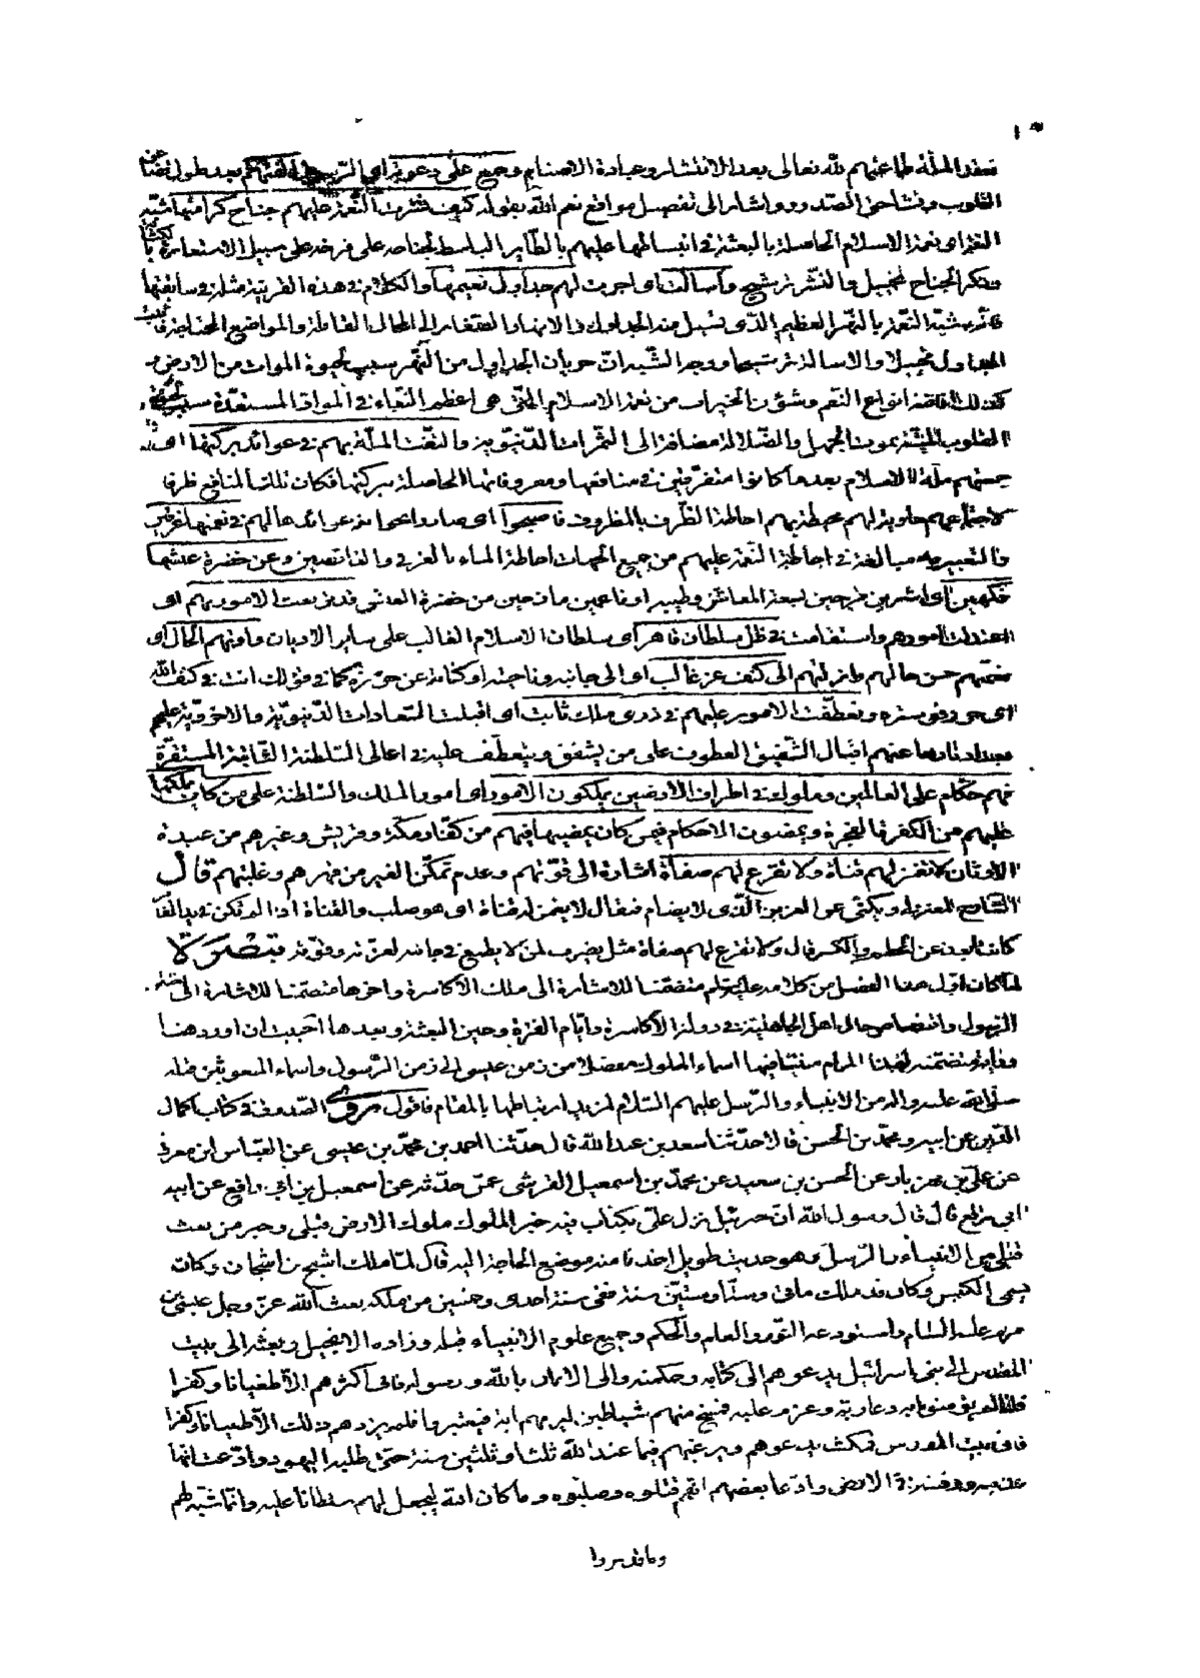 فعقد بملّته طاعتهم لله تعالى بعد الانتشار وعبادة الاصنام وجمع على دعوته اى الرسول الفتهم بعد طول تضاغن
القلوب وتشاحن الصدور واشار الى تفصيل مواقع نعم الله بقوله كيف نشرت النعمة عليهم جناح كرامتها شبّه
الخير اى نعمة الاسلام الحاصلة بالبعثة فى انبساطها عليهم بالطاير الباسط لجناحه على فرخه على سبيل الاستعارة
وذكر الجناح تخييل والنشر ترشيح واسالت اى اجرت لهم جداول نعيمها والكلام فى هذه القرينة مثله فى سابقتها
فانه شبّه النعمة بالنهر العظيم الذى تسيل منه الجداول والانهار الصغار الى المحال القابلة والمواضع المحتاجة
الجداول تخييلا والاسالة ترشيحا ووجه الشبه ان جريان الجداول من النهر سبب لحيوة الموات من الارض
كذلك افاضة انواع النعم وشؤن الخيرات من نعمة الاسلام التى هى اعظم النعماء فى المواد المستعدّة سبب لحيوة
القلوب الميّتة بموت الجهل والضلالة مضافة الى الثمرات الدنيوية والتفّت الملّة بهم فى عوائد بركتها اى
جمعتهم ملّة الاسلام بعد ما كانوا متفرّقين فى منافعها ومعروفاتها الحاصلة ببركتها فكان تلك المنافع ظرفا
لاجتماعهم حاوية لهم محيطة بهم احاطة الظرف بالمظروف فاصبحوا اى صاروا بما حوته عوائدها لهم فى نعمتها غرقين
والتعبير به مبالغة فى احاطة النعمة عليهم من جميع الجهات احاطة الماء بالغرقى والغائصين وعن خضرة عيشها
فكهين اى اشرين فرحين بسعة المعاش وطيبه او ناعمين مازحين من خضرة العيش قد تربعت الامور بهم اى
اعتدلت امورهم واستقامت فى ظل سلطان قاهر اى سلطان الاسلام الغالب على ساير الاديان وآوتهم الحال اى
ضمّتهم حسن حالهم وانزلتهم الى كنف عزّ غالب اى الى جانبه وناحيته او كناية عن حرزه كما فى قولك انت فى كنف الله
اى حرزه وستره وتعطّفت الامور عليهم فى ذرى ملك ثابت اى اقبلت السعادات الدنيوية والاخروية عليهم
بعد ادبارها عنهم اقبال الشفيق العطوف على من يشفق ويتعطّف عليه فى اعالى السلطنة الثابتة المستقرّة
فهم حكّام على العالمين وملوك فى اطراف الارضين يملكون الامور اى امور الملك والسلطنة على من كان يملكها
عليهم من الكفرة الفجرة ويمضون الاحكام فيمن كان يمضيها فيهم من كفار مكة وقريش وغيرهم من عبدة
الاوثان لا تغمز لهم قناة ولا تقرع لهم صفاة اشارة الى قوّتهم وعدم تمكّن الغير من قهرهم وغلبتهم قال
الشارح المعتزلى ويكنى عن العزيز الذى لا يضام فيقال لا يغمز له قناة اى هو صلب والقناة اذا لم تكن فى يد الغامز
كانت ابعد عن الحطم والكسر قال ولا تقرع لهم صفاة مثل يضرب لمن لا يطمع فى جانبه لعزّته وقوّته تبصرة
لمّا كان اوّل هذا الفصل من كلامه عليه السلم متضمّنا للاشارة الى ملك الاكاسرة وآخرها متضمّنا للاشارة الى بعثة
الرسول واقتصاص حال اهل الجاهلية فى دولة الاكاسرة وايام الفترة وحين البعثة وبعدها احببت ان اورد هنا
رواية متضمّنة لهذا المرام مبيّنا فيها اسماء الملوك مفصلا من زمن عيسى الى زمن الرسول واسماء المبعوثين قبله
صلى الله عليه وآله من الانبياء والرسل عليهم السلام لمزيد ارتباطها بالمقام فاقول روى الصدوق فى كتاب اكمال
الدين عن ابيه ومحمد بن الحسن قالا حدثنا سعد بن عبد الله قال حدثنا احمد بن محمد بن عيسى عن العباس ابن معروف
عن على بن مهزيار عن الحسن بن سعيد عن محمد بن اسمعيل القرشى عمّن حدثه عن اسمعيل بن ابى رافع عن ابيه
ابى رافع قال قال رسول الله ان جبرئيل نزل علىّ بكتاب فيه خبر الملوك ملوك الارض قبلى وخبر من بعث
قبلى من الانبياء والرسل وهو حديث طويل اخذنا منه موضع الحاجة اليه قال لمّا ملك اشبح بن اشجان وكان
يسمى الكيّس وكان قد ملك مأتى وستا وستين سنة ففى سنة احدى وخمسين من ملكه بعث الله عز وجل عيسى بن
مريم عليه السلام واستودعه النور والعلم والحكم وجميع علوم الانبياء قبله وزاده الانجيل وبعثه الى بيت
المقدس الى بنى اسرائيل يدعوهم الى كتابه وحكمته والى الايمان بالله ورسوله فابى اكثرهم الّا طغيانا وكفرا
فلمّا لم يؤمنوا به دعا ربّه وعزم عليه فمسخ منهم شياطين ليريهم آية فيعتبروا فلم يزدهم ذلك الّا طغيانا وكفرا
فاتى بيت المقدس فمكث يدعوهم ويرغّبهم فيما عند الله ثلثا وثلثين سنة حتى طلبه اليهود وادّعت انها
عذبته ودفنته فى الارض وادّعا بعضهم انهم قتلوه وصلبوه وما كان الله ليجعل لهم سلطانا عليه وانما شبّه لهم
وما قدروا